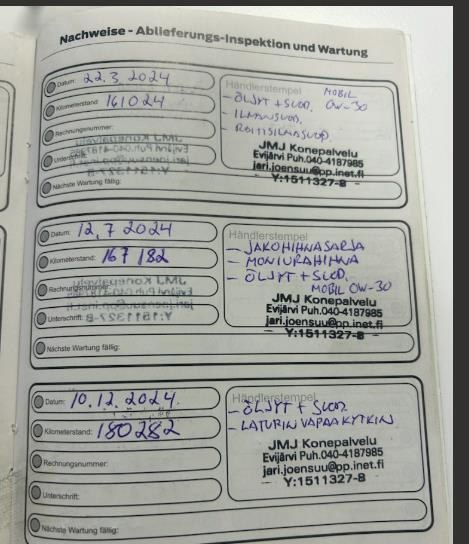 Nachweise - Ablieferungs-Inspektion und Wartung
Datum: 22.3.2024
Kilometerstand: 161024
Rechnungsnummer:
Unterschrift:
Nächste Wartung fällig:
Händlerstempel
MOBIL
- ÖLJYT + SUOD. OW-30
- ILMANSUOD.
- RAITISILMASUOD.
JMJ Konepalvelu
Evijärvi Puh.040-4187985
jari.joensuu@pp.inet.fi
Y:1511327-8
Datum: 12.7 2024
Kilometerstand: 167 182
Rechnungsnummer:
Unterschrift:
Nächste Wartung fällig:
Händlerstempel
- JAKOHIHNASARJA
- MONIURAHIHNA
- ÖLJYT + SUOD.
MOBIL OW-30
JMJ Konepalvelu
Evijärvi Puh.040-4187985
jari.joensuu@pp.inet.fi
Y:1511327-8
Datum: 10.12.2024.
Kilometerstand: 180282
Rechnungsnummer:
Unterschrift:
Nächste Wartung fällig:
Händlerstempel
- ÖLJYT + SUOD.
- LATURIN VAPAAKYTKIN
JMJ Konepalvelu
Evijärvi Puh.040-4187985
jari.joensuu@pp.inet.fi
Y:1511327-8